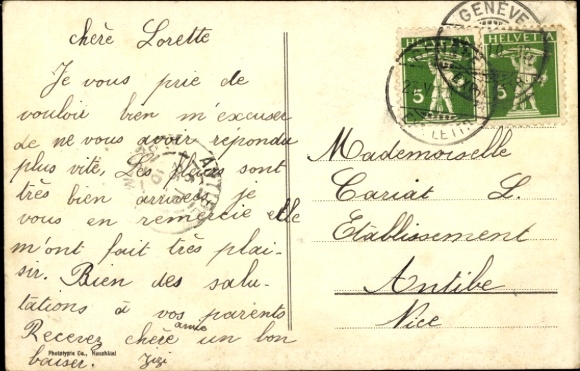 chère Lorette
Je vous prie de
vouloir bien m'excuser
de ne vous avoir répondu
plus vite, Les fleurs sont
très bien arrivées je
vous en remercie elle
m'ont fait très plai-
sir. Bien des salu-
tations à vos parents
Recevez chère amie un bon
baiser. Zizi
Phototypie Co., Neuchâtel
GENÈVE
HELVETIA
5
HELVETIA
5
Mademoiselle
Cariat L.
Etablissement
Antibe
Nice